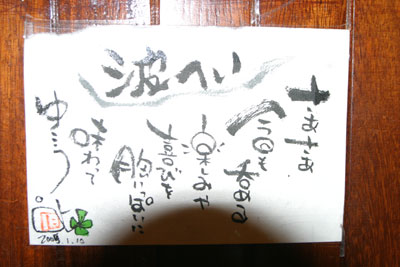 波へい
さあさあ
今日も呑める
楽しみや
喜びを
胸いっぱいに
味わって
ゆこう。